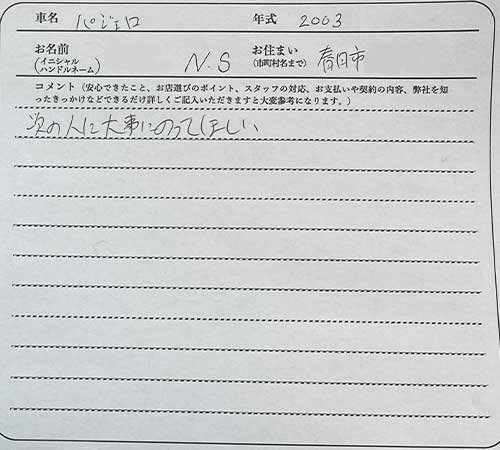 車名 パジェロ 年式 2003
お名前 (イニシャル ハンドルネーム) N.S お住まい (市町村名まで) 春日市
コメント（安心できたこと、お店選びのポイント、スタッフの対応、お支払いや契約の内容、弊社を知
ったきっかけなどできるだけ詳しくご記入いただきますと大変参考になります。）
次の人に大事にのってほしい